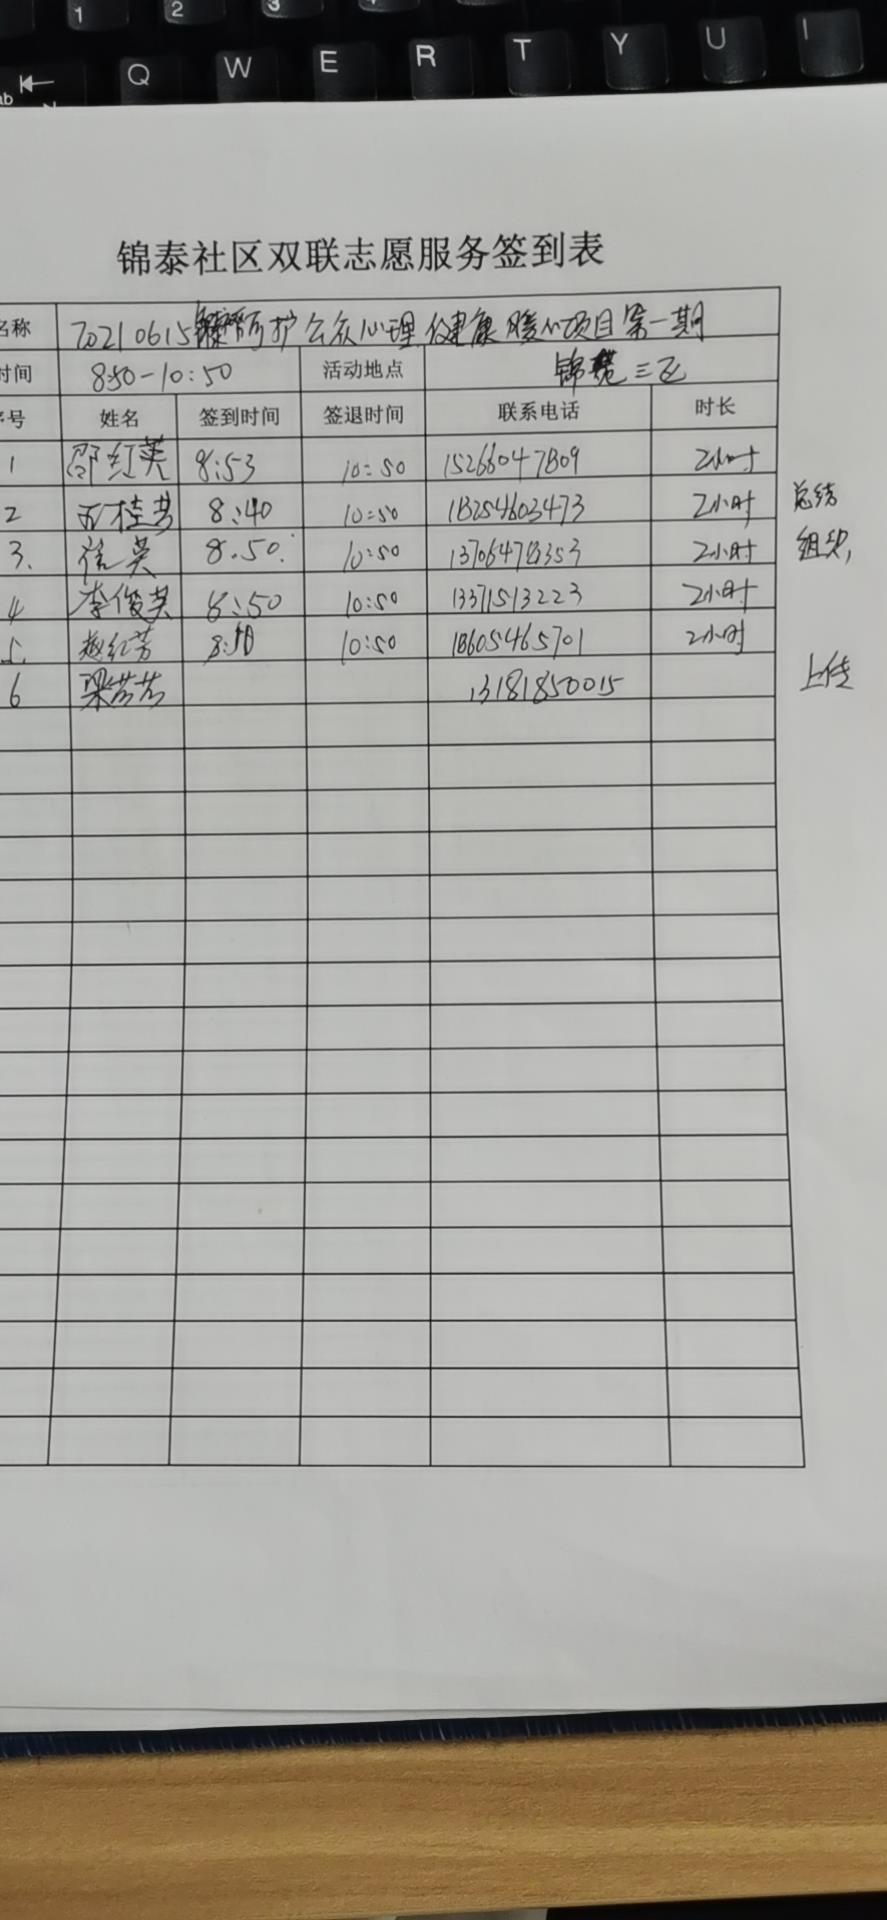 1 2 3
Q W E R T Y U I
ab
锦泰社区双联志愿服务签到表
名称 20210615 呵护公众心理健康暖心项目第一期
时间 8:50-10:50 活动地点 锦 三区
序号 姓名 签到时间 签退时间 联系电话 时长
1 邵红英 8:53 10:50 15266047809 2小时
2 王桂芳 8:40 10:50 18254603473 2小时 总结
3. 徐英 8.50. 10:50 2小时 组织,
4 李俊英 8:50 10:50 13371513223 2小时
5. 赵红芳 10:50 18605465701 2小时
6 梁芳芳 13181850015 上传